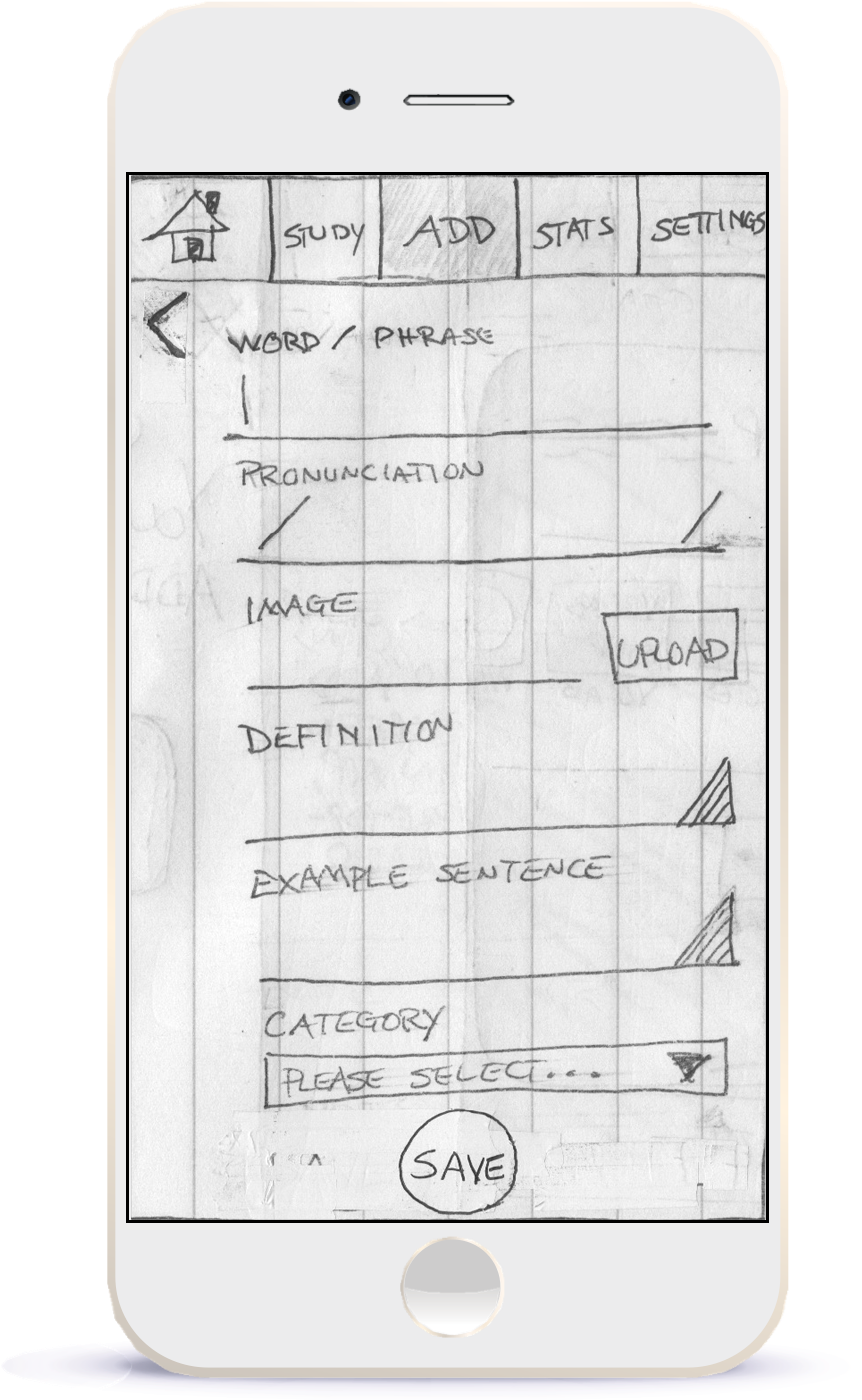 STUDY ADD STATS SETTINGS
WORD / PHRASE
PRONUNCIATION
/ /
IMAGE
UPLOAD
DEFINITION
EXAMPLE SENTENCE
CATEGORY
PLEASE SELECT...
SAVE